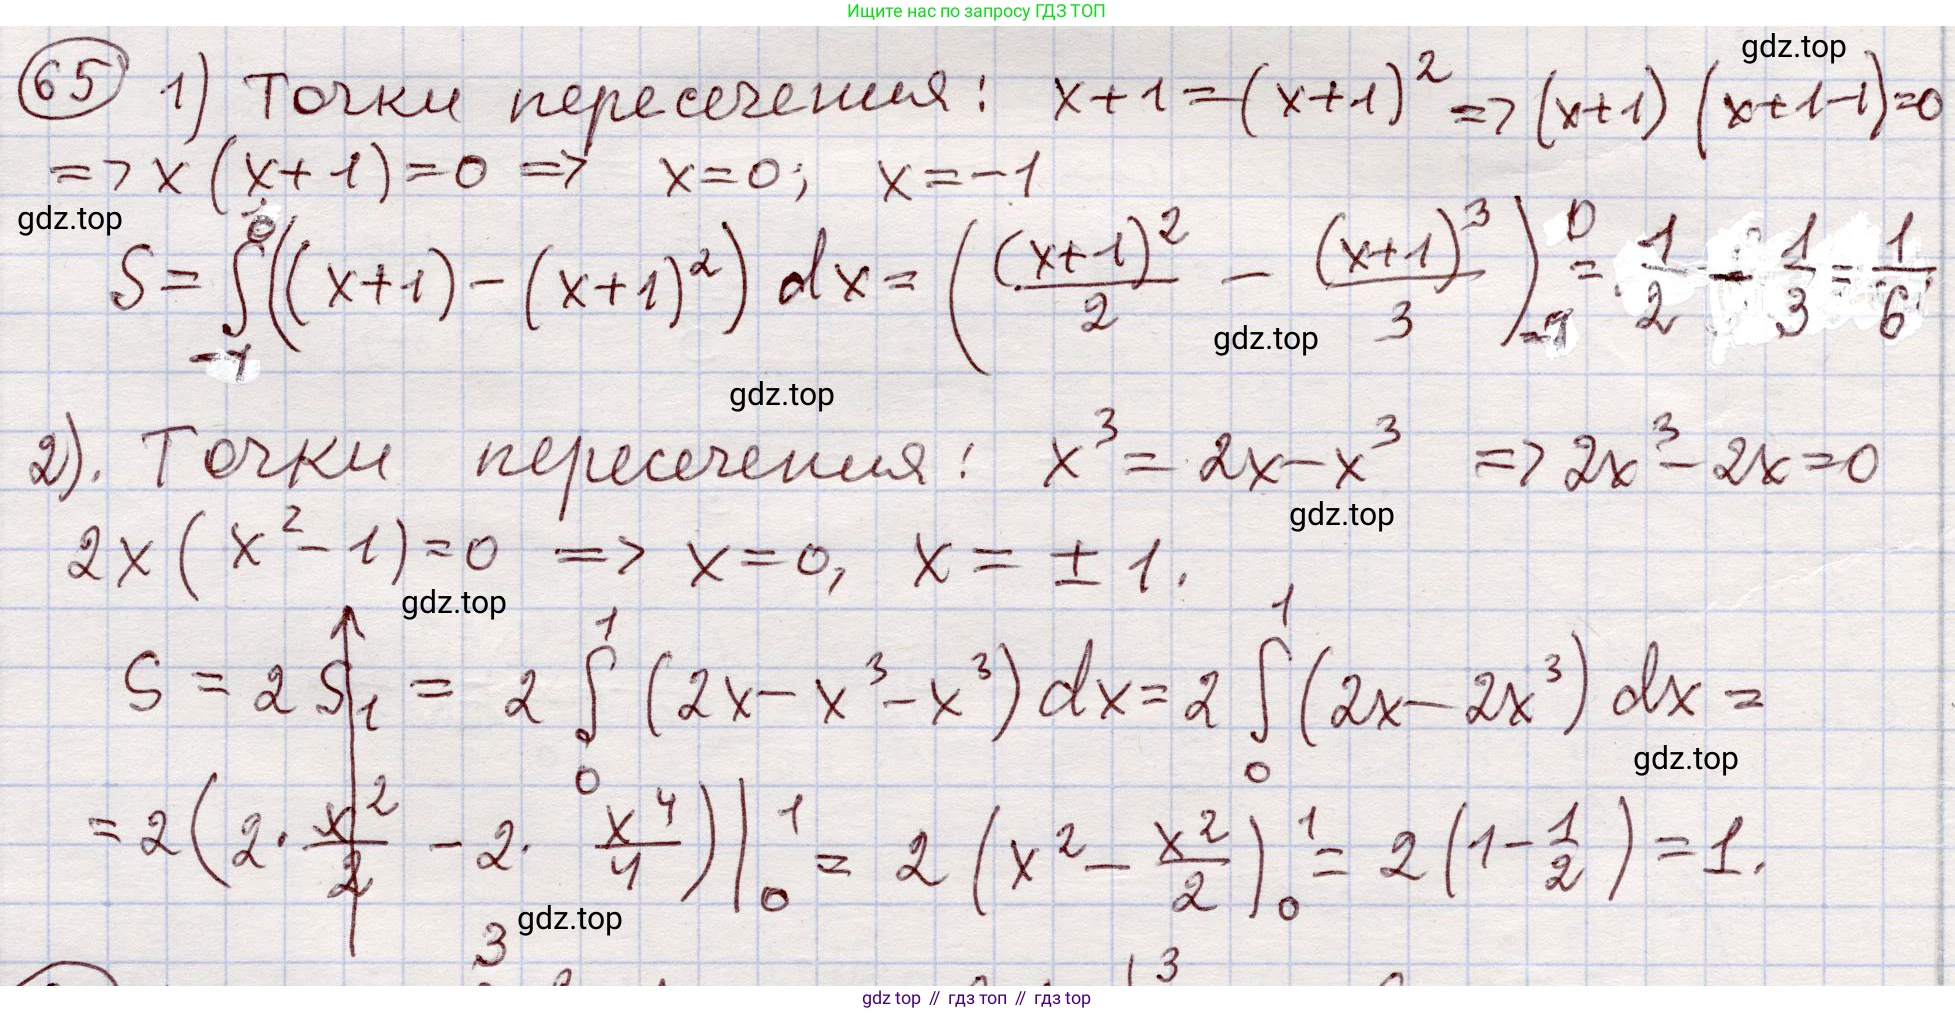 Ищите нас по запросу ГДЗ ТОП
gdz.top
65 1) Точки пересечения: x+1=(x+1)² => (x+1)(x+1-1)=0
=> x(x+1)=0 => x=0; x=-1
gdz.top
S = ∫₋₁⁰((x+1)-(x+1)²) dx = ((x+1)²/2 - (x+1)³/3)₋₁⁰ = 1/2 - 1/3 = 1/6
gdz.top
gdz.top
2). Точки пересечения: x³ = 2x-x³ => 2x³-2x=0
gdz.top
2x(x²-1)=0 => x=0, x=±1.
gdz.top
S = 2S₁ = 2∫₀¹(2x-x³-x³) dx = 2∫₀¹(2x-2x³) dx =
gdz.top
= 2(2·x²/2 - 2·x⁴/4)|₀¹ = 2(x² - x²/2)₀¹ = 2(1-1/2) = 1.
gdz.top
3 3
gdz top // гдз топ // гдз top